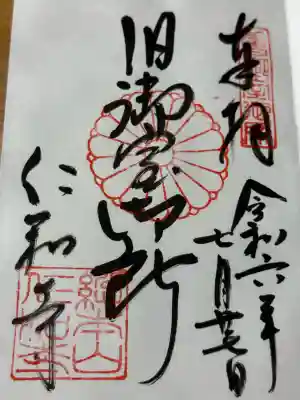 奉拝
令和六年
七月廿七日
旧御室御所
仁和寺